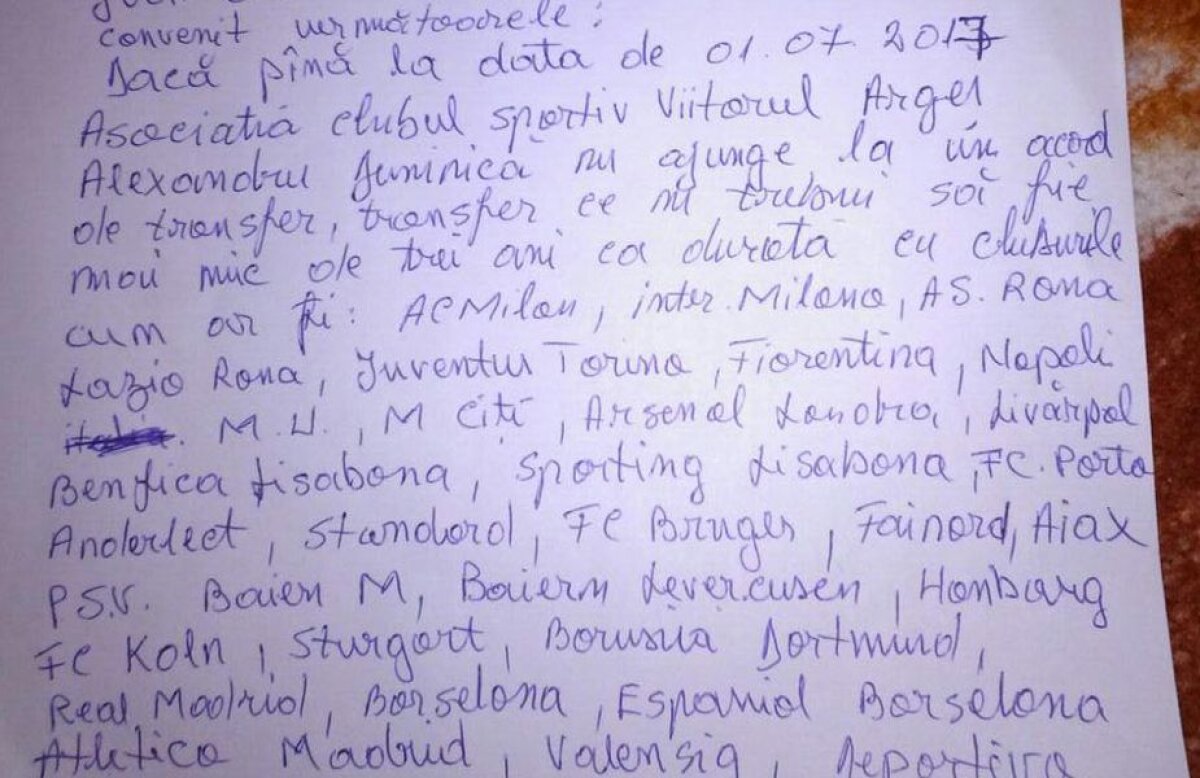 convenit urmatoorele :
Dacă pînă la data de 01.07.2017
Asociatia clubul sportiv Viitorul Argeș
Alexandru Juninica nu ajunge la un acord
de transfer, transfer ce nu trebui soi fie
mai mic de trei ani ca durata cu cluburile
cum ar fi : AC Milan, inter Milano, AS. Roma
Lazio Roma, Juventus Torino, Fiorentina, Napoli
M.U., M Citi, Arsenal Londra, Livărpol
Benfica Lisabona, sporting Lisabona, FC. Porto
Anderlect, Standard, FC Bruges, Fainord, Aiax
P.S.V. Baien M, Baiern Levercusen, Hamburg
FC Koln, Sturgart, Borusiia Dortmund,
Real Madrid, Barselona, Espaniol Barselona
Atletico Madrid, Valensia, Deportivo